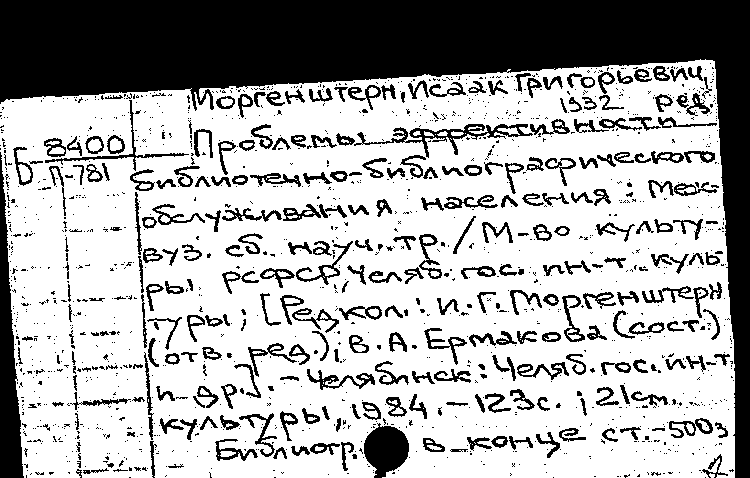 Моргенштерн, Исаак Григорьевич,
1932 ред.
Б 8400
П-781
Проблемы эффективности
библиотечно-библиографического
обслуживания населения : Меж-
вуз. сб. науч. тр. / М-во культу-
ры РСФСР, Челяб. гос. ин-т куль
туры ; [Редкол. : И. Г. Моргенштерн
(отв. ред.), В. А. Ермакова (сост.)
и др.]. - Челябинск : Челяб. гос. ин-т
культуры, 1984. - 123 с. ; 21 см.
Библиогр. в конце ст. - 500э